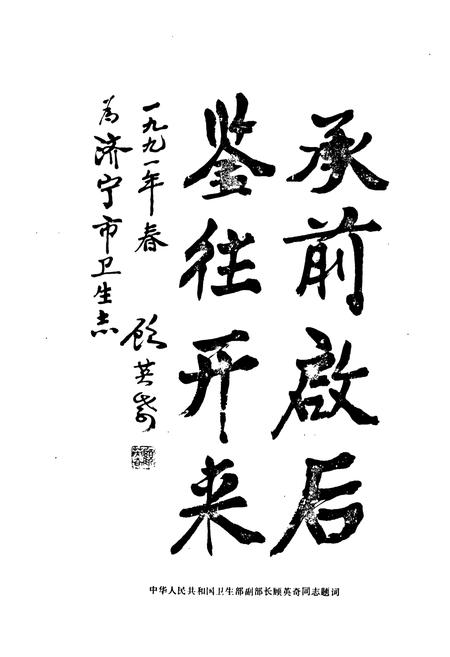 承前啟后
鉴往开来
为济宁市卫生志
一九九一年春
顾英奇
中华人民共和国卫生部副部长顾英奇同志题词